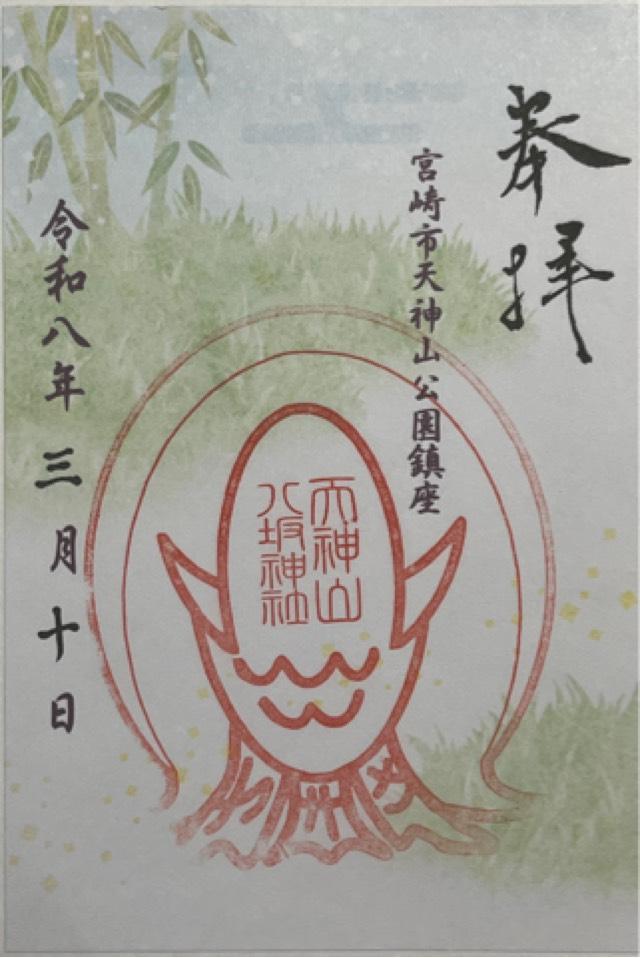 奉拝
宮崎市天神山公園鎮座
天神山
八坂神社
令和八年 三月十日